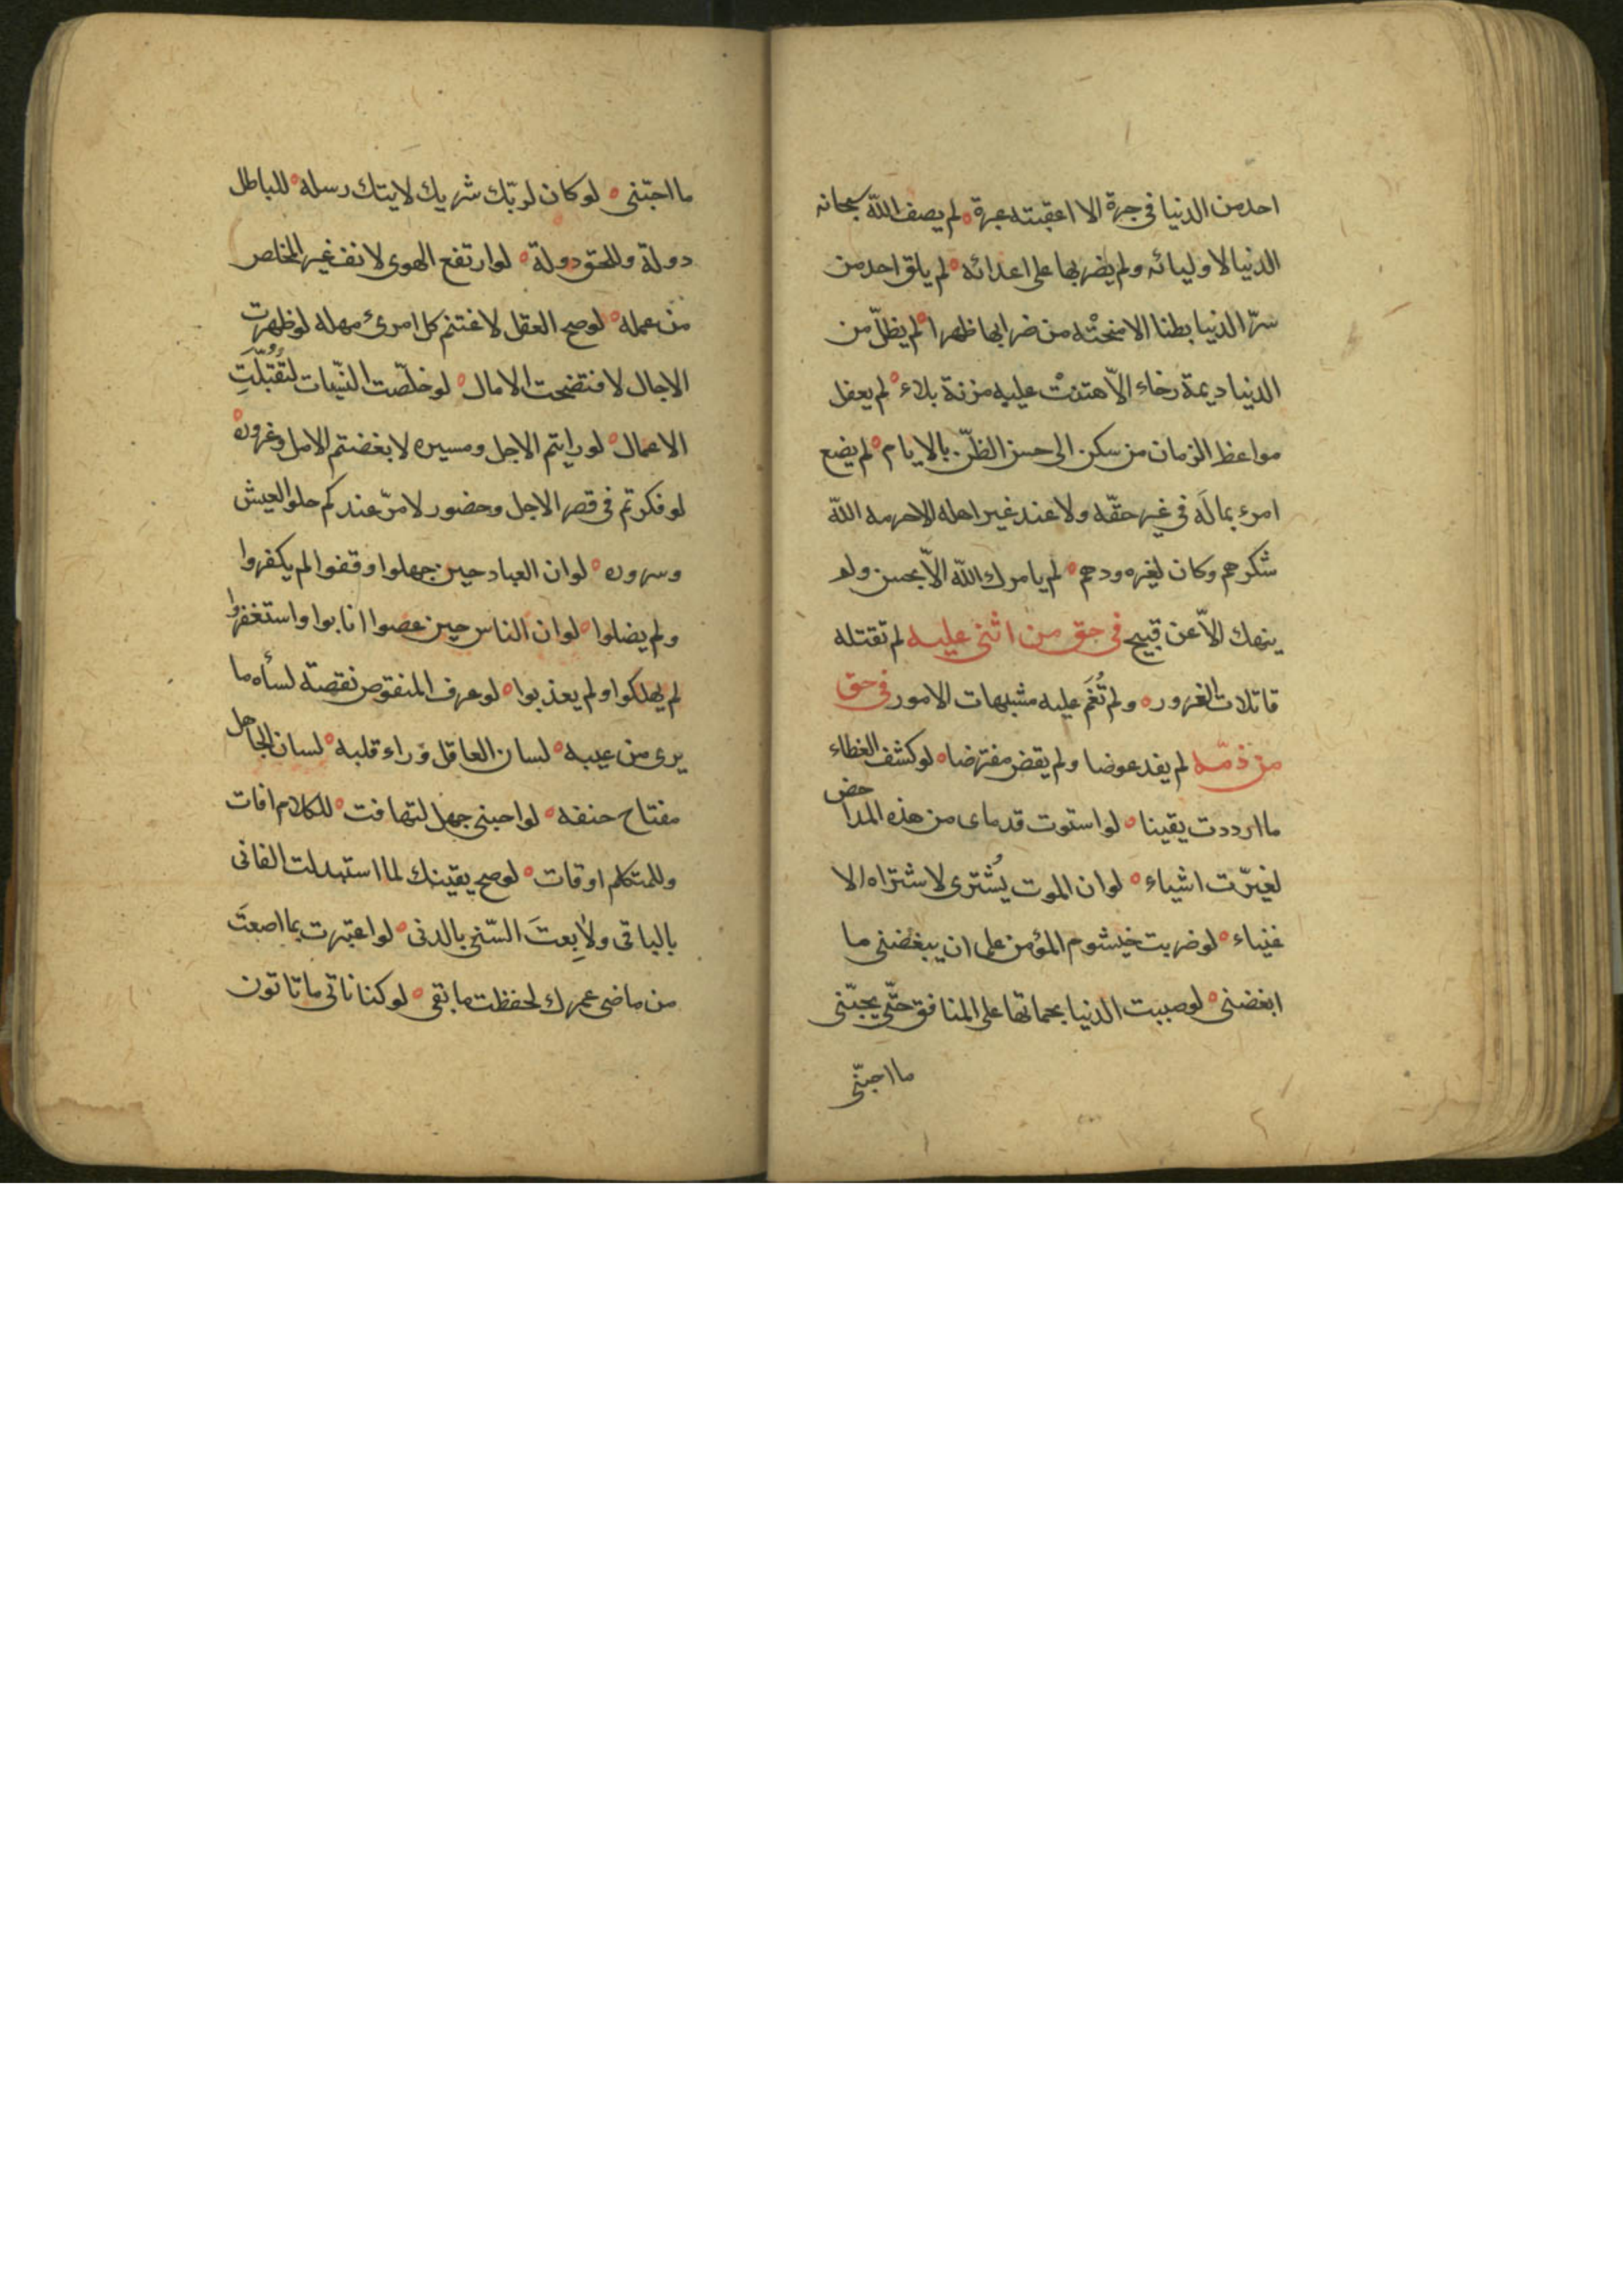 احد من الدنيا فى جرة الا اعقبته عبرة ه لم يصف الله سبحانه
الدنيا لاوليائه ولم يضربها على اعدائه ه لم يلق احد من
سرّ الدنيا بطنا الا منحتْه من ضرابها ظهرا ه لم يظلّ من
الدنيا ديمة رخاء الاّ هتنتْ عليه مزنة بلاء ه لم يعفل
مواعظ الزمان من سكن الى حسن الظنّ بالايام ه لم يضع
امرء بمالَه فى غير حقّه ولا عند غير اهله الا حرمه الله
شكرهم وكان لغيره ودهم ه لم يامرك الله الاّ بحسن ولم
ينهك الاّ عن قبيح فى حق من اثنى عليه لم تقتله
قاتلات الغرور ه ولم تُغَم عليه مشبهات الامور فى حق
من ذمّه لم يفد عوضا ولم يقض مفترضا ه لو كشف الغطاء
ما ارددت يقينا ه لو استوت قدماى من هذه المداحض
لغيّرت اشياء ه لو ان الموت يُشترى لاشتراه الا
غنياء ه لو ضربت خيشوم المؤمن على ان يبغضنى ما
ابغضنى ه لو صببت الدنيا بحماتها على المنافق حتّى يحبّنى
ما احبّنى
ما احبّنى ه لو كان لربّك شريك لايتك رسله ه للباطل
دولة وللحق دولة ه لو ارتفع الهوى لانف غير المخلص
من عمله ه لو صح العقل لاغتنم كل امرئ مهله لو ظهرت
الاجال لافتضحت الامال ه لو خلّصت النيّات لتُقُبّلَتِ
الاعمال ه لو رايتم الاجل ومسيره لابغضتم الامل وغروره
لو فكرتم فى قصر الاجل وحضور لامرّ عندكم حلو العيش
وسروره ه لو ان العباد حين جهلوا وقفوا لم يكفروا
ولم يضلوا ه لو ان الناس حين عصوا انابوا واستغفروا
لم يهلكوا ولم يعذبوا ه لو عرف المنقوص نقصة لسأه ما
يرى من عيبه ه لسان العاقل وراء قلبه ه لسان الجاهل
مفتاح حنفه ه لو احبنى جهل لتهافت ه للكلام افات
وللمتكلم اوقات ه لو صح يقينك لما استبدلت الفانى
بالباقى ولا بِعتَ السّنى بالدنى ه لو اعتبرت بما اصعتَ
من ماضى عمرك لحفظت ما بقى ه لو كنا ناتى ما تاتون